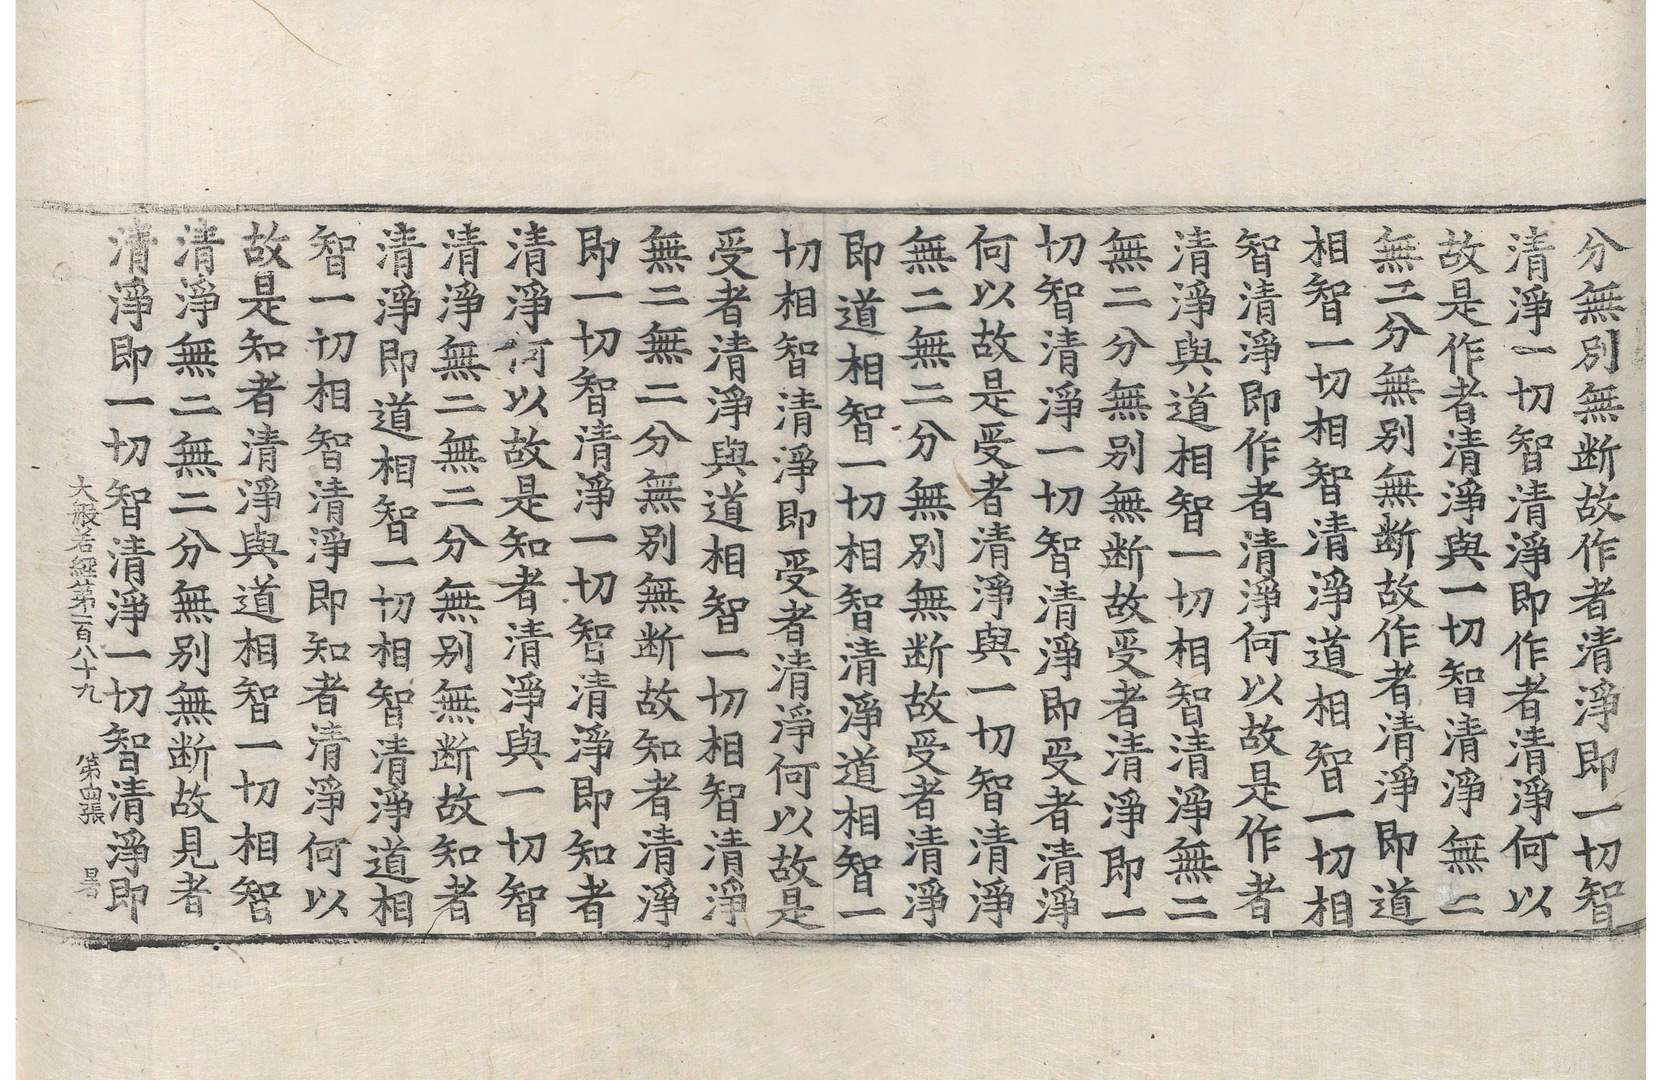 分無別無断故作者清淨即一切智
清淨一切智清淨即作者清淨何以
故是作者清淨與一切智清淨無二
無二分無別無断故作者清淨即道
相智一切相智清淨道相智一切相
智清淨即作者清淨何以故是作者
清淨與道相智一切相智清淨無二
無二分無別無断故受者清淨即一
切智清淨一切智清淨即受者清淨
何以故是受者清淨與一切智清淨
無二無二分無別無断故受者清淨
即道相智一切相智清淨道相智一
切相智清淨即受者清淨何以故是
受者清淨與道相智一切相智清淨
無二無二分無別無断故知者清淨
即一切智清淨一切智清淨即知者
清淨何以故是知者清淨與一切智
清淨無二無二分無別無断故知者
清淨即道相智一切相智清淨道相
智一切相智清淨即知者清淨何以
故是知者清淨與道相智一切相智
清淨無二無二分無別無断故見者
清淨即一切智清淨一切智清淨即
大般若經第一百八十九 第四張 暑